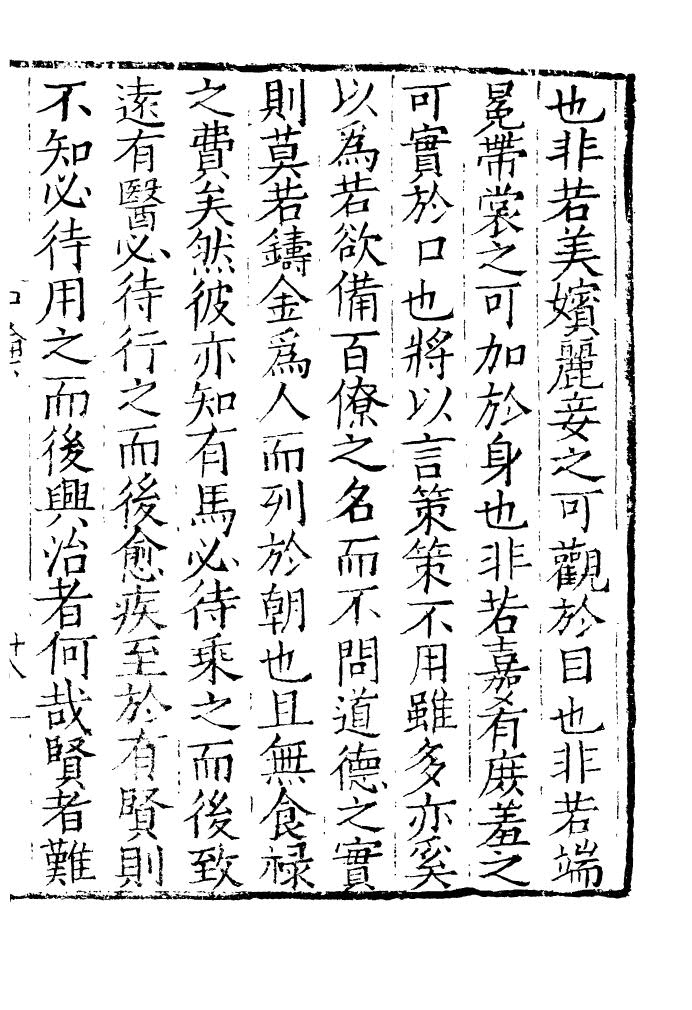 也非若美嬪麗妾之可觀於目也非若端
冕帶裳之可加於身也非若嘉肴庶羞之
可實於口也將以言策策不用雖多亦奚
以爲若欲備百僚之名而不問道德之實
則莫若鑄金爲人而列於朝也且無食祿
之費矣然彼亦知有馬必待乘之而後致
遠有醫必待行之而後愈疾至於有賢則
不知必待用之而後興治者何哉賢者難